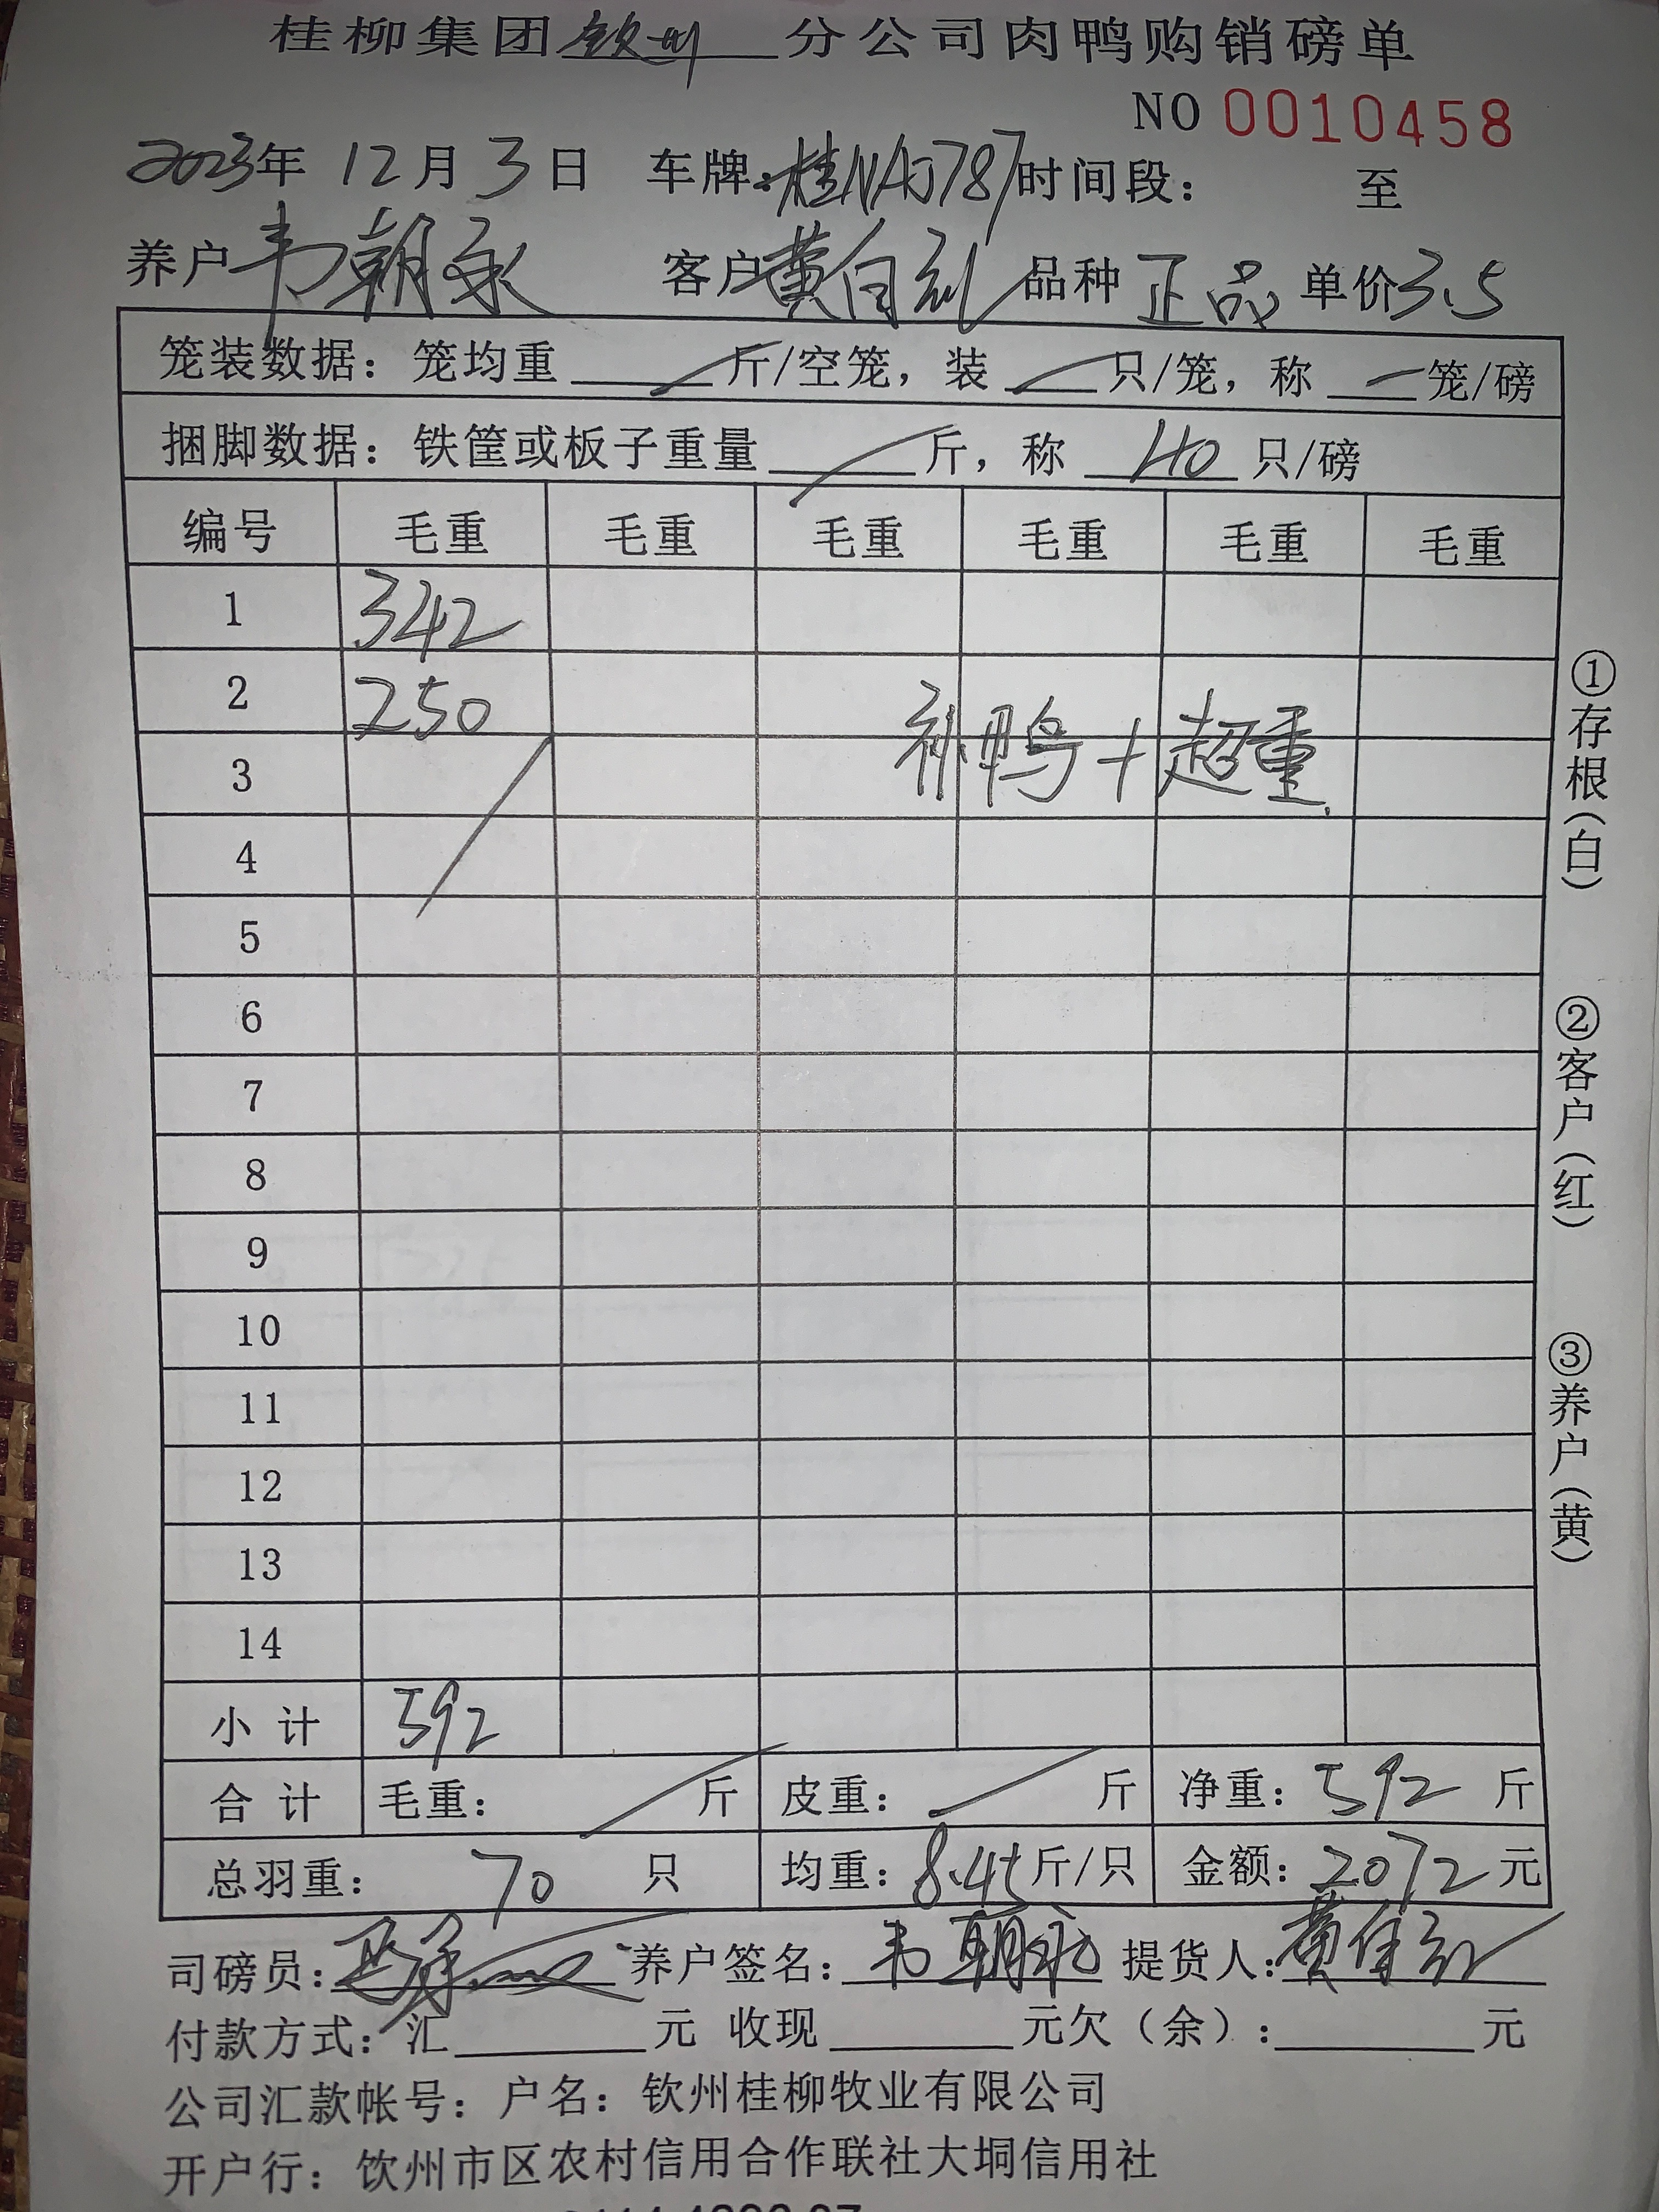 桂柳集团钦州分公司肉鸭购销磅单
NO 0010458
2023年 12月 3日 车牌:桂NAJ787时间段: 至
养户韦朝永 客户黄白红 品种 正品 单价3.5
笼装数据: 笼均重 斤/空笼, 装 只/笼, 称 笼/磅
捆脚数据: 铁筐或板子重量 斤, 称 40 只/磅
编号 毛重 毛重 毛重 毛重 毛重 毛重
1 342
2 250
补鸭+超重
3
4
5
6
7
8
9
10
11
12
13
14
小计 592
合计 毛重: 斤 皮重: 斤 净重: 592 斤
总羽重: 70 只 均重: 8.45斤/只 金额: 2072元
司磅员: 养户签名: 韦朝永 提货人:
付款方式: 汇 元 收现 元欠(余): 元
公司汇款帐号: 户名: 钦州桂柳牧业有限公司
开户行: 钦州市区农村信用合作联社大垌信用社
①存根(白)
②客户(红)
③养户(黄)